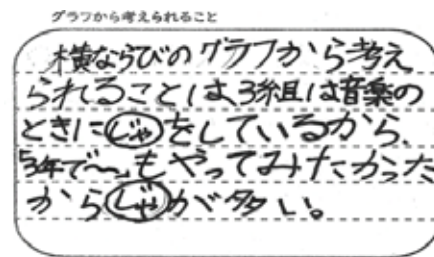 グラフから考えられること
横ならびのグラフから考え
られることは、3組は音楽の
ときにじゃをしているから、
「5年で〜」もやってみたかった
からじゃが多い。